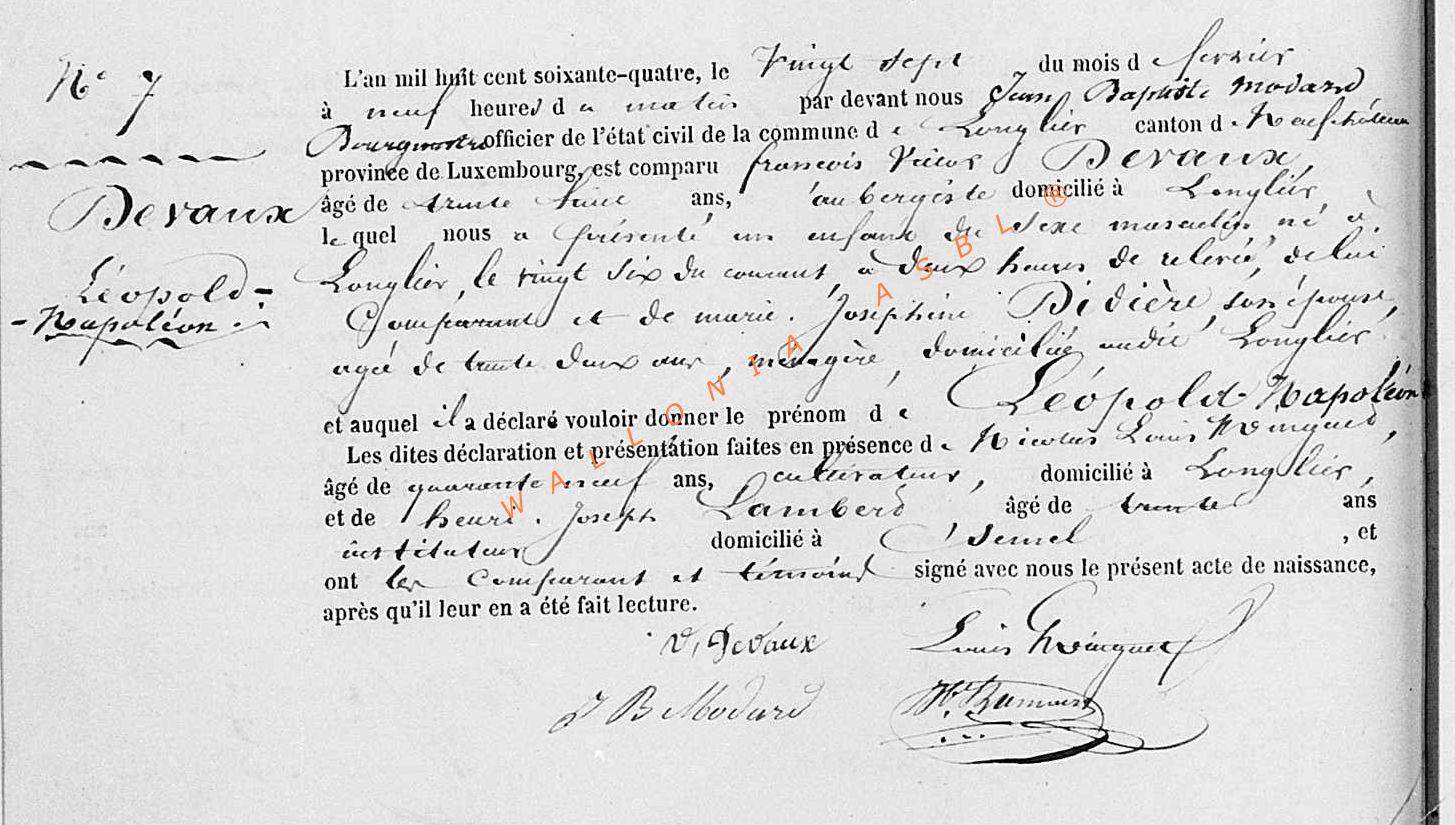 N° 7
Devaux
Léopold-
-Napoléon.
L'an mil huit cent soixante-quatre, le vingt sept du mois d e février
à neuf heures d u matin par devant nous Jean Baptiste Modard,
Bourgmestre officier de l'état civil de la commune d e Longlier canton d e Neufchâteau
province de Luxembourg, est comparu françois Victor Devaux,
âgé de trente ans, aubergiste domicilié à Longlier,
le quel nous a présenté un enfant du sexe masculin né à
Longlier, le vingt six du courant, à deux heures de relevée, de lui
Comparant et de marie. Joséphine Didière, son épouse,
agée de trente deux ans, ménagère, domiciliée audit Longlier
et auquel il a déclaré vouloir donner le prénom d e Léopold-Napoléon
Les dites déclaration et présentation faites en présence d e Nicolas Louis
âgé de quarante neuf ans, cultivateur, domicilié à Longlier,
et de henri. Joseph Lambert âgé de trente ans
instituteur domicilié à Semel, et
ont les Comparant et témoins signé avec nous le présent acte de naissance,
après qu'il leur en a été fait lecture.
V. Devaux Louis
J B Modard
WALLONIA ASBL ®